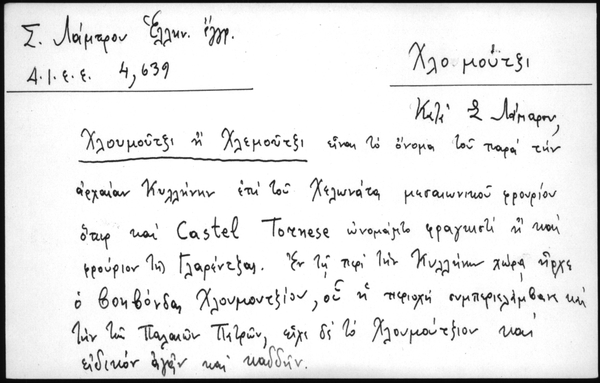 Σ. Λάμπρου Ἑλλην. ἔγγρ.
Δ.Ι.Ε.Ε. 4,639
Χλομοῦτζι
Κατὰ Σ Λάμπρον,
Χλουμοῦτζι ἢ Χλεμοῦτζι εἶναι τὸ ὄνομα τοῦ παρὰ τὴν
ἀρχαίαν Κυλλήνην ἐπὶ τοῦ Χελωνάτα μεσαιωνικοῦ φρουρίου
ὅπερ καὶ Castel Tornese ὠνομάζετο φραγκιστὶ ἢ καὶ
φρούριον τῆς Γλαρέντζας. Ἐν τῇ περὶ τὴν Κυλλήνην χώρᾳ ἦρχε
ὁ βοηβόνδας Χλουμουτζίου, οὗ ἡ περιοχὴ συμπεριελάμβανε καὶ
τὴν τῶν Παλαιῶν Πατρῶν, εἶχε δὲ τὸ Χλουμούτζιον καὶ
εἰδικὸν ἀγᾶν καὶ καδδῆν.